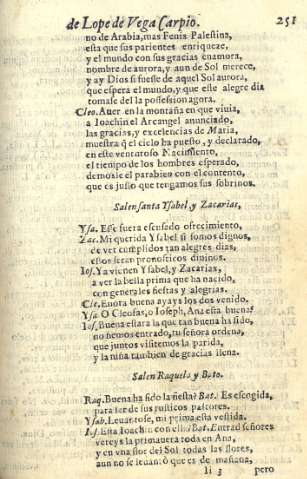 de Lope de Vega Carpio. 251
no de Arabia, mas Fenix Palestina,
esta que sus parientes enriqueze,
y el mundo con sus gracias enamora,
nombre de aurora, y aun de Sol merece,
y ay Dios si fuesse de aquel Sol aurora,
que espera el mundo, y que este alegre dia
tomasse del la possession agora.
Cleo. Auer en la montaña en que viuia,
a Ioachin el Arcangel anunciado,
las gracias, y excelencias de Maria,
muestra q̃ el cielo ha puesto, y declarado,
en este venturoso Nacimiento,
el tiempo de los hombres esperado,
demosle el parabien con el contento,
que es justo que tengamos sus sobrinos.
Salen santa Ysabel, y Zacarias,
Ysa. Esse fuera escusado ofrecimiento,
Zac. Mi querida Ysabel si somos dignos,
de ver cumplidos tan alegres dias,
estos seran pronosticos diuinos.
Ios. Ya vienen Ysabel, y Zacarias,
a ver la bella prima que ha nacido,
con generales fiestas y alegrias.
Cle. Enora buena ayays los dos venido.
Ysa. O Cleofas, o Ioseph, Ana esta buena?
Ios. Buena estara la que tan buena ha sido,
no hemos entrado, tu señora ordena,
que juntos visitemos la parida,
y la niña tambien de gracias llena.
Salen Raquela y Bato.
Raq. Buena ha sido la fiesta? Bat. Es escogida,
para ser de sus rusticos pastores.
Ysab. Leuantose, mi prima esta vestida.
Ios. Esta Ioachin con ella? Bat. Entrad señores
vereys la primauera toda en Ana,
y en vna flor del Sol todas las flores,
aun no se leuantò que es de mañana,
Ii 3 pero